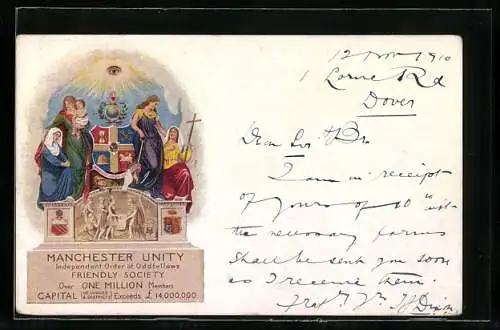 MANCHESTER UNITY
Independent Order of Oddfellows
FRIENDLY SOCIETY
Over ONE MILLION Members
CAPITAL (OF LODGES & DISTRICTS) Exceeds £14,000,000
12 Nov 1910
1 Lorne Rd
Dover
Dear Sir & Bro
I am in receipt
of yours of 10th inst
the necessary forms
shall be sent you soon
as I receive them.
Frat yrs